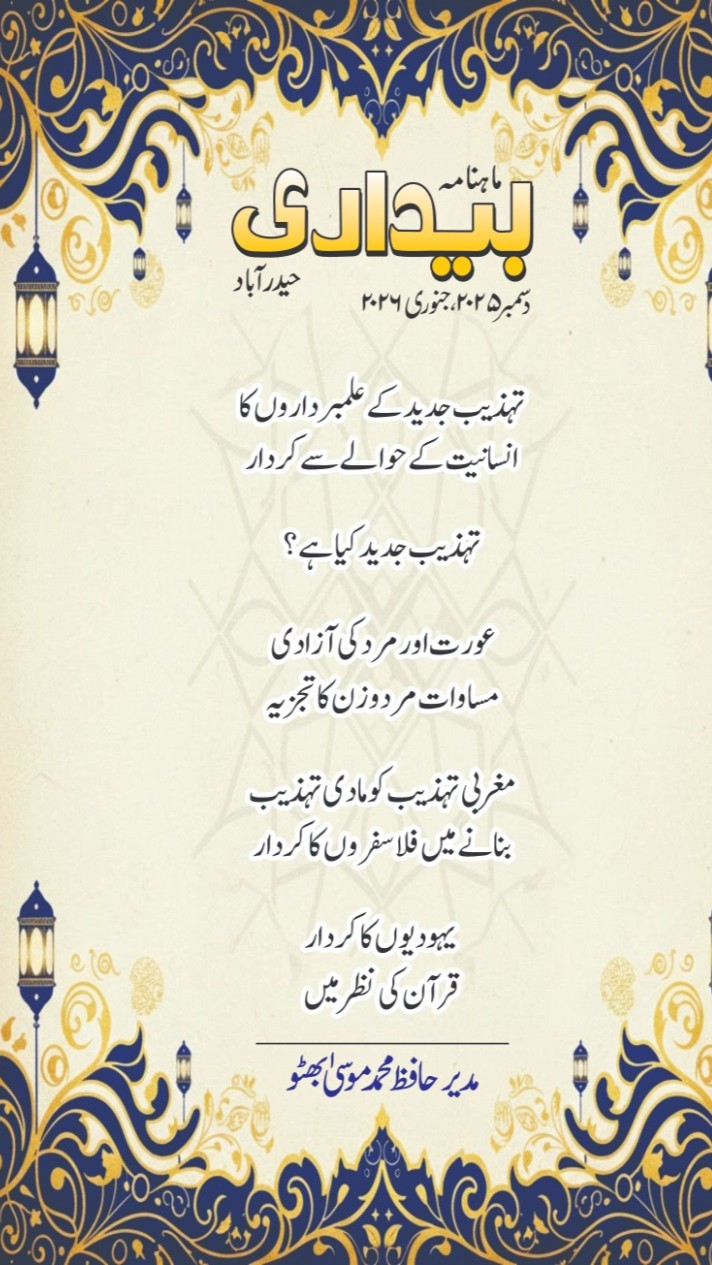 ماہنامہ
بیداری
حیدرآباد
دسمبر ۲۰۲۵، جنوری ۲۰۲۶
تہذیب جدید کے علمبرداروں کا
انسانیت کے حوالے سے کردار
تہذیب جدید کیا ہے؟
عورت اور مرد کی آزادی
مساوات مرد وزن کا تجزیہ
مغربی تہذیب کو مادی تہذیب
بنانے میں فلاسفروں کا کردار
یہودیوں کا کردار
قرآن کی نظر میں
مدیر حافظ محمد موسیٰ بھٹو